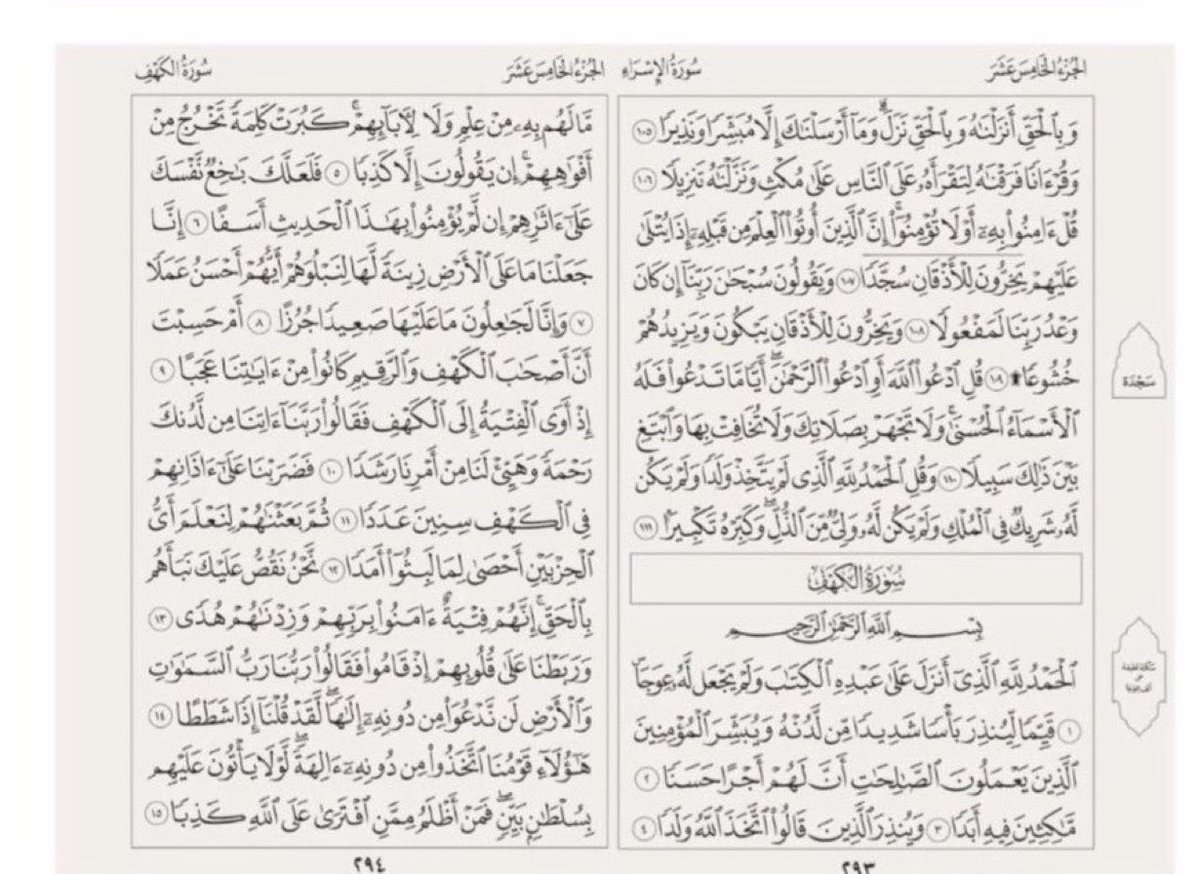 الجزء الخامس عشر
سورة الإسراء
وَبِٱلْحَقِّ أَنزَلْنَٰهُ وَبِٱلْحَقِّ نَزَلَۗ وَمَآ أَرْسَلْنَٰكَ إِلَّا مُبَشِّرًا وَنَذِيرًا ١٠٥
وَقُرْءَانًا فَرَقْنَٰهُ لِتَقْرَأَهُۥ عَلَى ٱلنَّاسِ عَلَىٰ مُكْثٍ وَنَزَّلْنَٰهُ تَنزِيلًا ١٠٦
قُلْ ءَامِنُوا۟ بِهِۦٓ أَوْ لَا تُؤْمِنُوٓا۟ۚ إِنَّ ٱلَّذِينَ أُوتُوا۟ ٱلْعِلْمَ مِن قَبْلِهِۦٓ إِذَا يُتْلَىٰ
عَلَيْهِمْ يَخِرُّونَ لِلْأَذْقَانِ سُجَّدًا ١٠٧ وَيَقُولُونَ سُبْحَٰنَ رَبِّنَآ إِن كَانَ
وَعْدُ رَبِّنَا لَمَفْعُولًا ١٠٨ وَيَخِرُّونَ لِلْأَذْقَانِ يَبْكُونَ وَيَزِيدُهُمْ
خُشُوعًا ۩ ١٠٩ قُلِ ٱدْعُوا۟ ٱللَّهَ أَوِ ٱدْعُوا۟ ٱلرَّحْمَٰنَۖ أَيًّا مَّا تَدْعُوا۟ فَلَهُ
ٱلْأَسْمَآءُ ٱلْحُسْنَىٰۚ وَلَا تَجْهَرْ بِصَلَاتِكَ وَلَا تُخَافِتْ بِهَا وَٱبْتَغِ
بَيْنَ ذَٰلِكَ سَبِيلًا ١١٠ وَقُلِ ٱلْحَمْدُ لِلَّهِ ٱلَّذِى لَمْ يَتَّخِذْ وَلَدًا وَلَمْ يَكُن
لَّهُۥ شَرِيكٌ فِى ٱلْمُلْكِ وَلَمْ يَكُن لَّهُۥ وَلِىٌّ مِّنَ ٱلذُّلِّۖ وَكَبِّرْهُ تَكْبِيرًۢا ١١١
سورة الكهف
بِسْمِ ٱللَّهِ ٱلرَّحْمَٰنِ ٱلرَّحِيمِ
ٱلْحَمْدُ لِلَّهِ ٱلَّذِىٓ أَنزَلَ عَلَىٰ عَبْدِهِ ٱلْكِتَٰبَ وَلَمْ يَجْعَل لَّهُۥ عِوَجَاۜ
١ قَيِّمًا لِّيُنذِرَ بَأْسًا شَدِيدًا مِّن لَّدُنْهُ وَيُبَشِّرَ ٱلْمُؤْمِنِينَ
ٱلَّذِينَ يَعْمَلُونَ ٱلصَّٰلِحَٰتِ أَنَّ لَهُمْ أَجْرًا حَسَنًا ٢
مَّٰكِثِينَ فِيهِ أَبَدًا ٣ وَيُنذِرَ ٱلَّذِينَ قَالُوا۟ ٱتَّخَذَ ٱللَّهُ وَلَدًا ٤
٢٩٣
سجدة
الجزء الخامس عشر
سورة الكهف
مَّا لَهُم بِهِۦ مِنْ عِلْمٍ وَلَا لِءَابَآئِهِمْۚ كَبُرَتْ كَلِمَةً تَخْرُجُ مِنْ
أَفْوَٰهِهِمْۚ إِن يَقُولُونَ إِلَّا كَذِبًا ٥ فَلَعَلَّكَ بَٰخِعٌ نَّفْسَكَ
عَلَىٰٓ ءَاثَٰرِهِمْ إِن لَّمْ يُؤْمِنُوا۟ بِهَٰذَا ٱلْحَدِيثِ أَسَفًا ٦ إِنَّا
جَعَلْنَا مَا عَلَى ٱلْأَرْضِ زِينَةً لَّهَا لِنَبْلُوَهُمْ أَيُّهُمْ أَحْسَنُ عَمَلًا
٧ وَإِنَّا لَجَٰعِلُونَ مَا عَلَيْهَا صَعِيدًا جُرُزًا ٨ أَمْ حَسِبْتَ
أَنَّ أَصْحَٰبَ ٱلْكَهْفِ وَٱلرَّقِيمِ كَانُوا۟ مِنْ ءَايَٰتِنَا عَجَبًا ٩
إِذْ أَوَى ٱلْفِتْيَةُ إِلَى ٱلْكَهْفِ فَقَالُوا۟ رَبَّنَآ ءَاتِنَا مِن لَّدُنكَ
رَحْمَةً وَهَيِّئْ لَنَا مِنْ أَمْرِنَا رَشَدًا ١٠ فَضَرَبْنَا عَلَىٰٓ ءَاذَانِهِمْ
فِى ٱلْكَهْفِ سِنِينَ عَدَدًا ١١ ثُمَّ بَعَثْنَٰهُمْ لِنَعْلَمَ أَىُّ
ٱلْحِزْبَيْنِ أَحْصَىٰ لِمَا لَبِثُوٓا۟ أَمَدًا ١٢ نَّحْنُ نَقُصُّ عَلَيْكَ نَبَأَهُم
بِٱلْحَقِّۚ إِنَّهُمْ فِتْيَةٌ ءَامَنُوا۟ بِرَبِّهِمْ وَزِدْنَٰهُمْ هُدًى ١٣
وَرَبَطْنَا عَلَىٰ قُلُوبِهِمْ إِذْ قَامُوا۟ فَقَالُوا۟ رَبُّنَا رَبُّ ٱلسَّمَٰوَٰتِ
وَٱلْأَرْضِ لَن نَّدْعُوَا۟ مِن دُونِهِۦٓ إِلَٰهًاۖ لَّقَدْ قُلْنَآ إِذًا شَطَطًا ١٤
هَٰٓؤُلَآءِ قَوْمُنَا ٱتَّخَذُوا۟ مِن دُونِهِۦٓ ءَالِهَةًۖ لَّوْلَا يَأْتُونَ عَلَيْهِم
بِسُلْطَٰنٍۭ بَيِّنٍۖ فَمَنْ أَظْلَمُ مِمَّنِ ٱفْتَرَىٰ عَلَى ٱللَّهِ كَذِبًا ١٥
٢٩٤